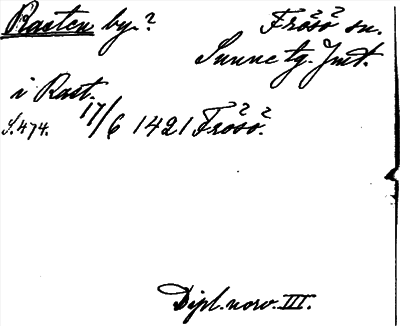 Rasten by.? Frösö sn.
Sunne tg. Jmt.
i Rast.
S. 474. 17/6 1421 Frösö.
Dipl. norv. III.